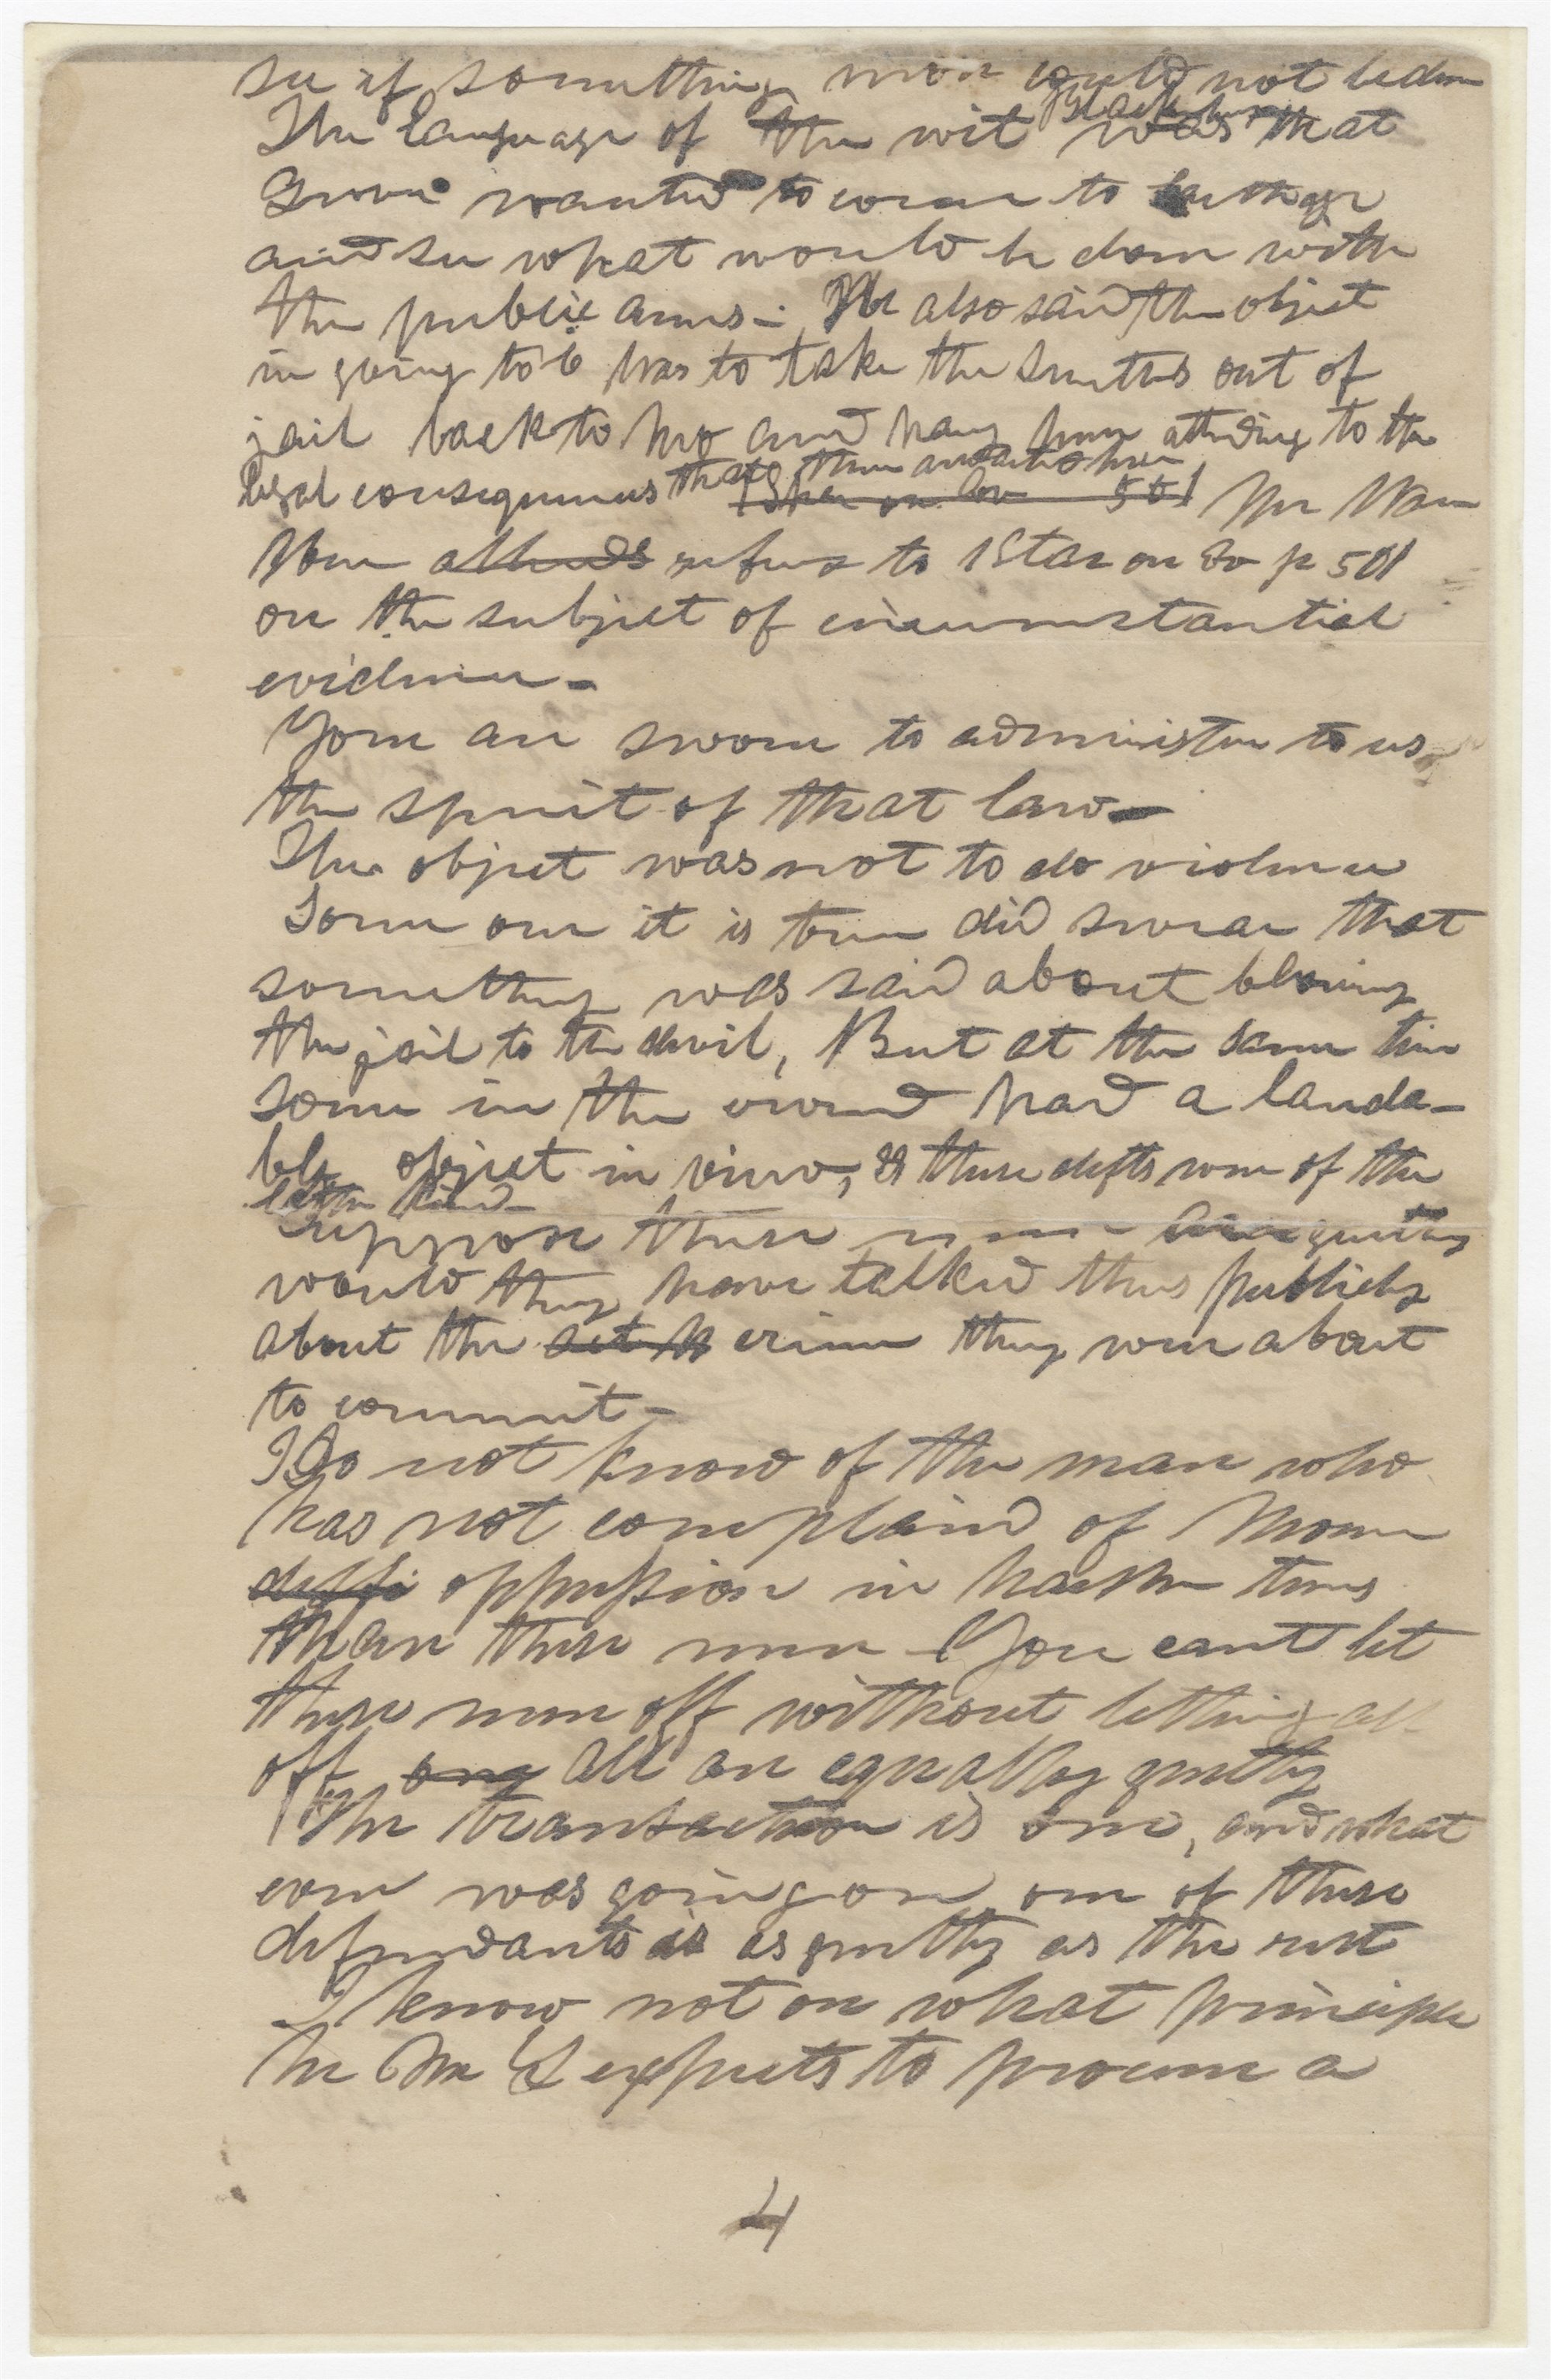 see if something more could not be done
The language of the wit Blackburn was that
Grover wanted to come to Carthage
and see what would be done with
the public arms - He also said the object
in going to C was to take the Smiths out of
jail back to Mo and have them attending to the
legal consequences that them
[Star on Ev 501 Mr War
ren alluds refers to 1 Star on Ev p 501
on the subject of circumstantial
evidence -
You are sworn to administer to us
the spirit of that law -
The object was not to do violence
Some one it is true did swear that
something was said about blowing
the jail to the devil, But at the same time
some in the crowd had a lauda-
ble object in view, & these defts were of the
latter kind -
Suppose these men are guilty
would they have talked thus publicly
about the act th crime they were about
to commit -
I Do not know of the man who
has not complaind of Morm
diffi oppression in harsher terms
than these men - You cant let
these men off without letting all
off any All are equally guilty
The transaction is one, and what
ever was going on one of these
defendants is as guilty as the rest
I know not on what principle
he Mr L expects to procure a
4